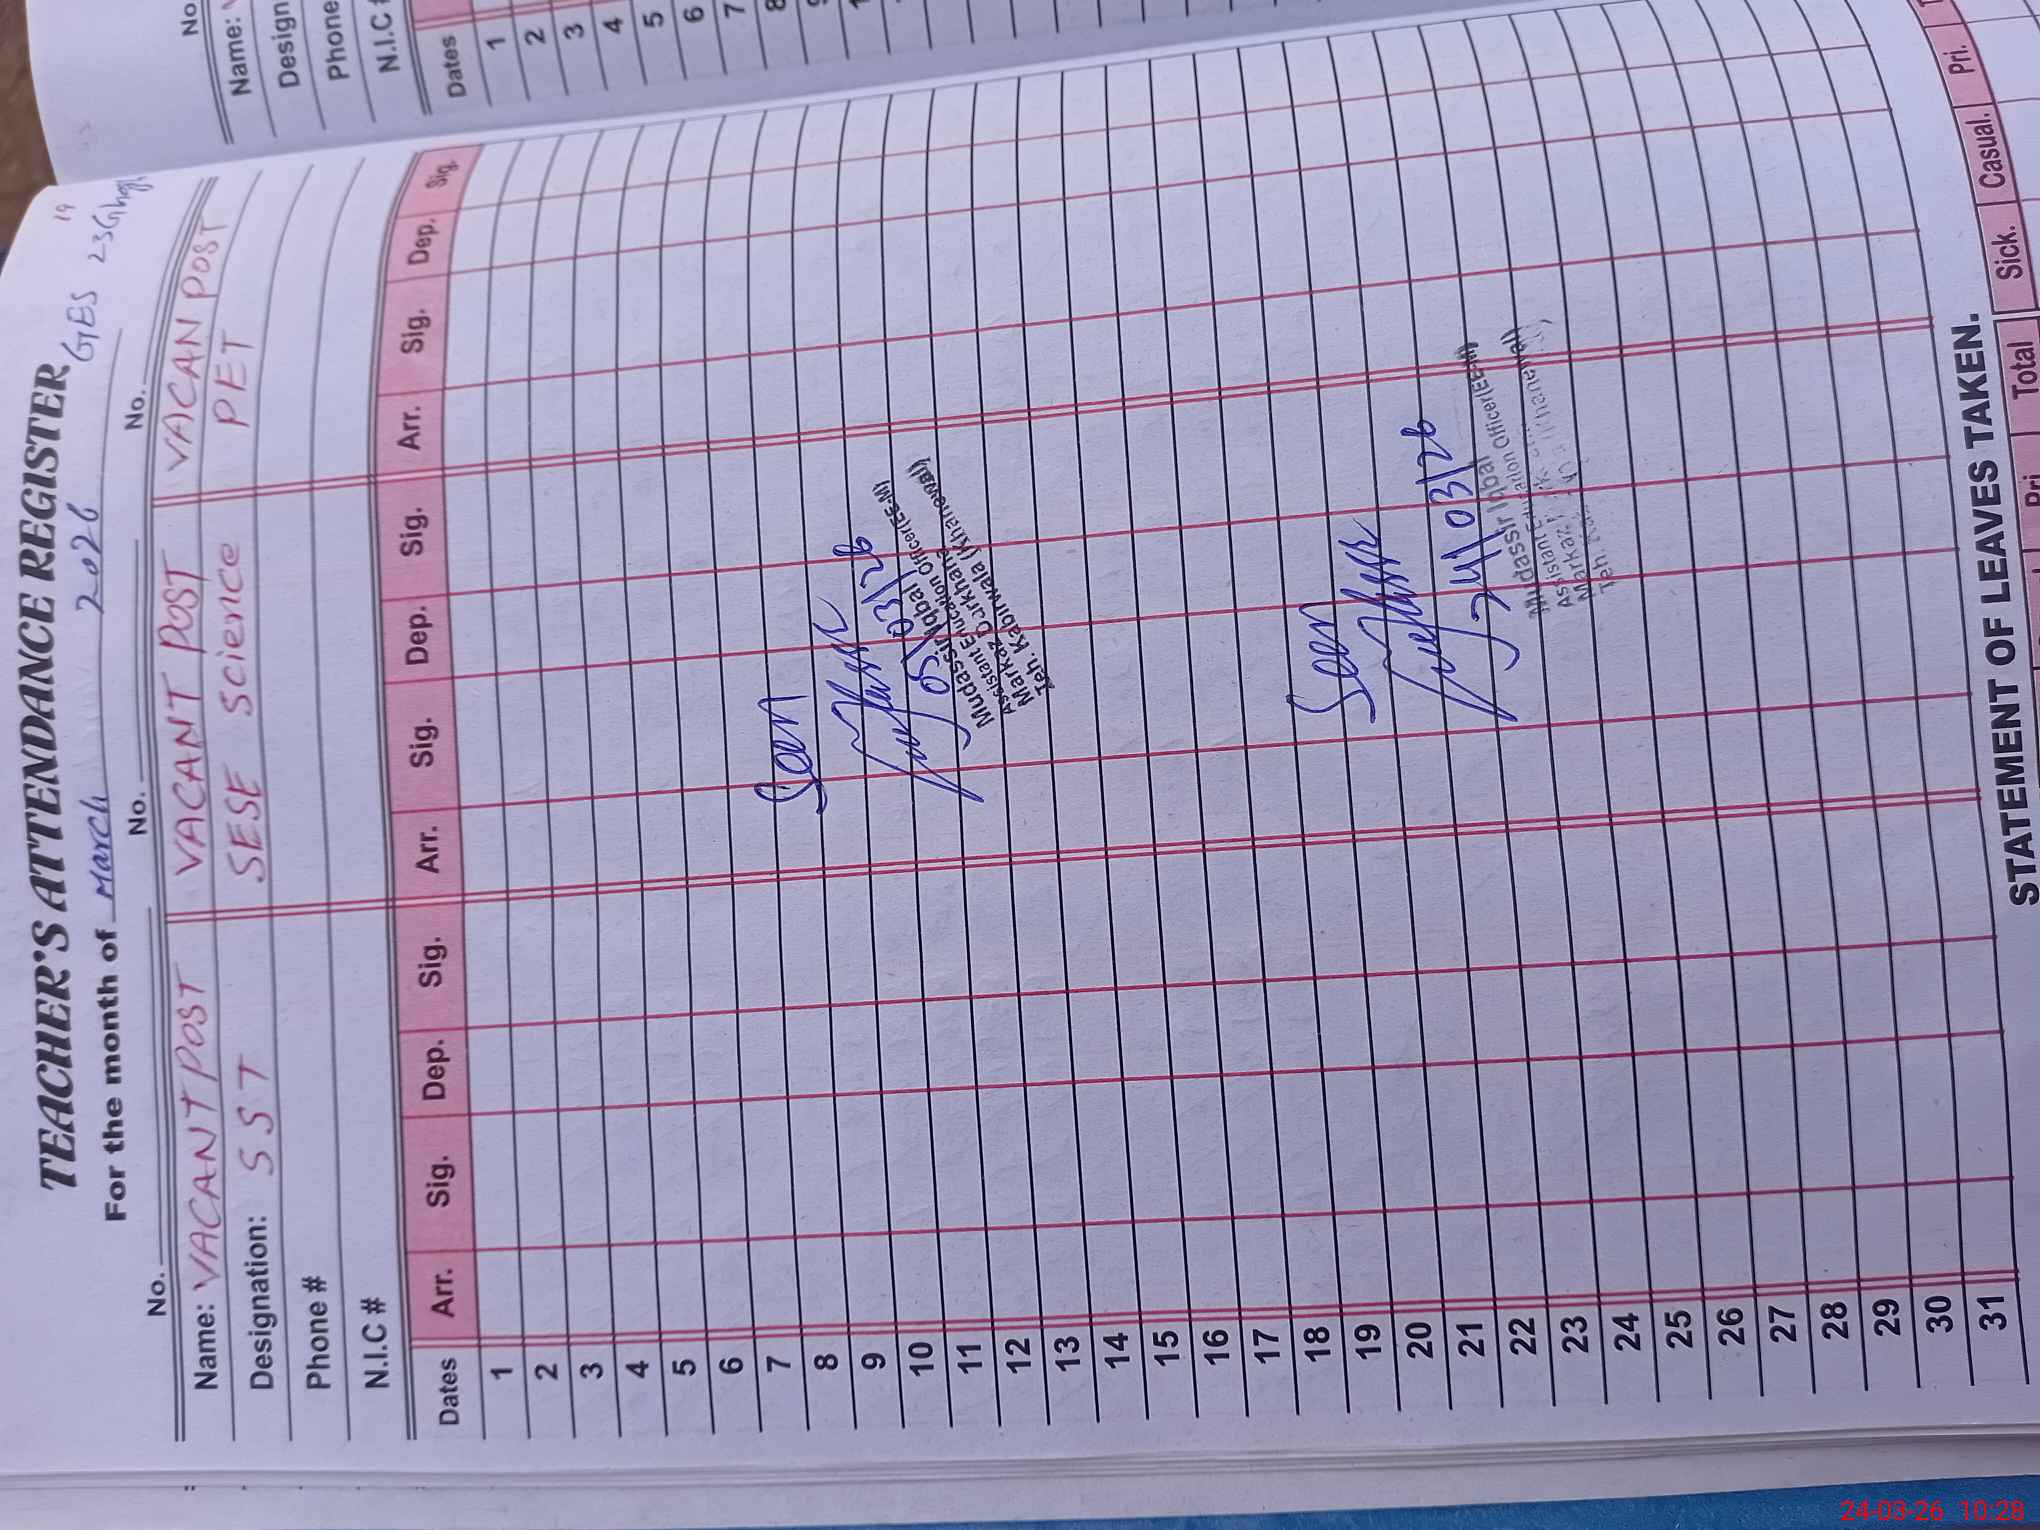 TEACHER'S ATTENDANCE REGISTER
19
For the month of March 2026 GES 23
No. No. No.
Name: VACANT POST VACANT POST VACAN POST
Designation: SST SESE Science PET
Phone #
N.I.C #
Dates Arr. Sig. Dep. Sig. Arr. Sig. Dep. Sig. Arr. Sig. Dep. Sig.
1
2
3
4
5
6
7
8
9
10
11
12
13
14
15
16
17
18
19
20
21
22
23
24
25
26
27
28
29
30
31
Seen
05/03/26
Mudassir Iqbal
Assistant Education Officer(EE-M)
Markaz Darkhana
Teh. Kabirwala (Khanewal)
Seen
24/03/26
Mudassir Iqbal
Assistant Education Officer(EE-M)
Markaz
Teh.
STATEMENT OF LEAVES TAKEN.
Pri. Total Sick. Casual. Pri.
No
Name:
Design
Phone
N.I.C #
Dates
1
2
3
4
5
6
7
8
24-03-26 10:28